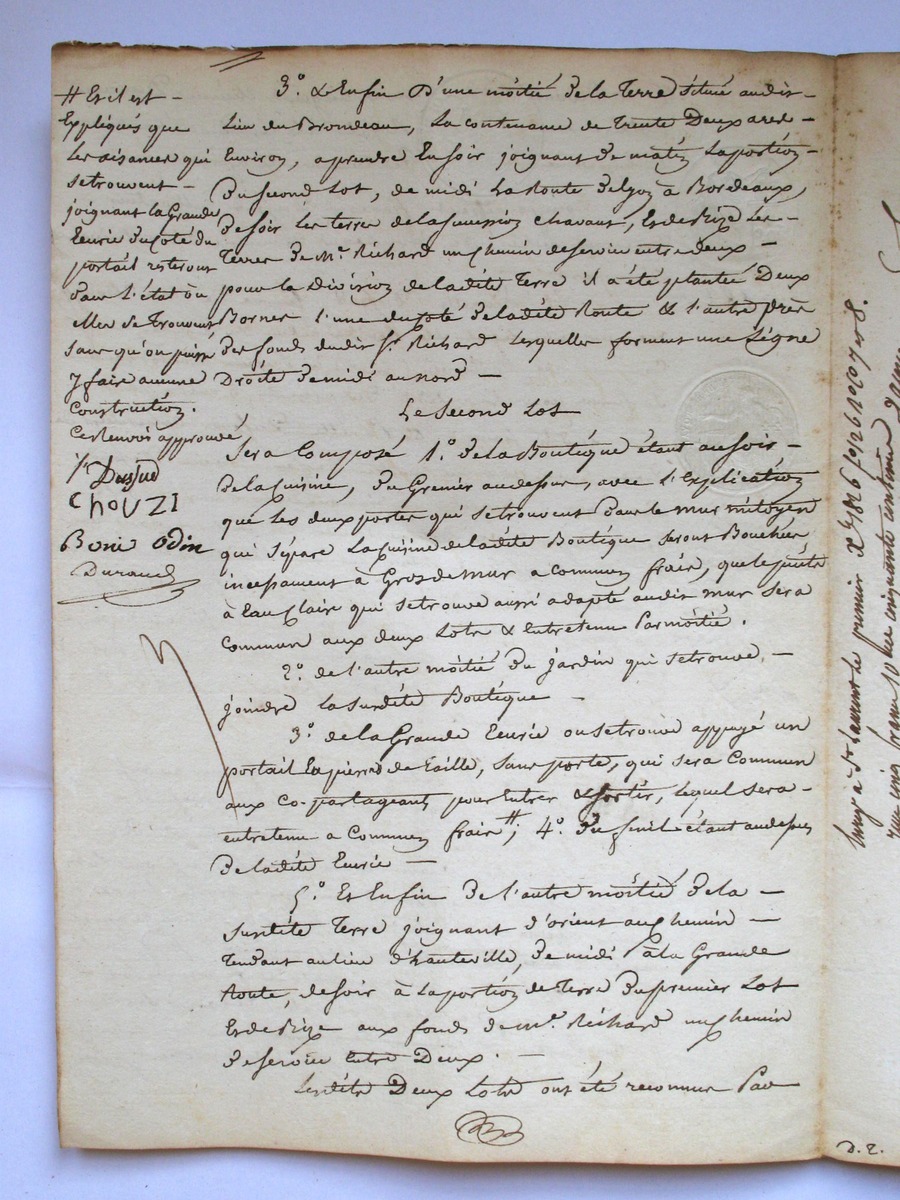 # Et il est
Expliqués que
les aisances qui
se trouvent
joignant la Grande
Ecurie du Coté du
portail resteront
dans l'état où
elles se trouvent
sans qu'on puisse
y faire aucune
Construction.
Ce renvoi approuvé
CHOUZI
Boni Odin
Durand
3.° & Enfin D'une moitié de la Terre située audit
Lieu du Brondeau, La contenance de Trente Deux ares
Environ, a prendre En soir joignant de matin La portion
Du second Lot, de midi La Route de Lyon à Bordeaux,
De soir Les terres de la succession Chavant, Et de Bize Les
Terres de Mr. Richard un Chemin de servin entre deux
pour la Division de la dite Terre il a été plantée Deux
Bornes l'une du Coté de la dite Route & l'autre près
Des fonds du dit Sr. Richard Lesquelles forment une Ligne
Droite de midi au nord
Le Second Lot
Sera Composé 1.° de la Boutique étant au soir
De la Cuisine, du Grenier au dessus, avec l'Explication
que Les deux portes qui se trouvent Dans le mur mitoyen
qui Sépare La Cuisine de la dite Boutique seront Bouchées
incessament à Gros de mur a Commun frais, que
à Eau Claire qui se trouve aussi adapté au dit mur Sera
Commun aux deux Lots & Entretenu Par moitié.
2.° de l'autre moitié du jardin qui se trouve
joindre La susdite Boutique
3.° de la Grande Ecurie ou se trouve appuyé un
portail En pierre de Taille, sans porte, qui sera Commun
aux Co-partageants pour Entrer & sortir, Lequel sera
entretenu a Commun frais #; 4.° du fenil étant au dessus
De la dite Ecurie
5.° Et Enfin de l'autre moitié de la
susdite Terre joignant d'orient au Chemin
Tendant au lieu d'hauteville, de midi à la Grande
Route, de soir à La portion de Terre du premier Lot
Et de Bize aux fonds de Mr. Richard un Chemin
de servin Entre Deux.
Lesdits Deux Lots ont été reconnus Par
D. 2.